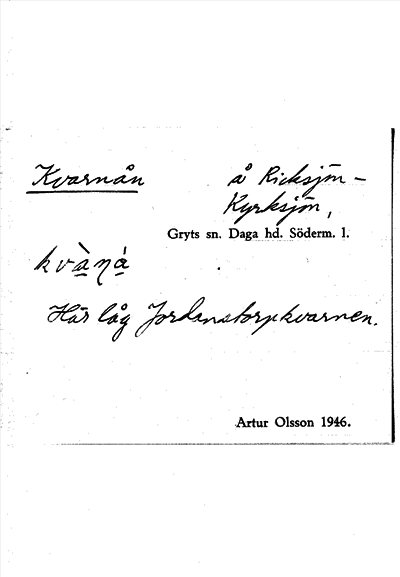 Kvarnån å Ricksjön –
Kyrksjön,
Gryts sn. Daga hd. Söderm. l.
kvàṉá̱
Här låg Jordanstorpkvarnen.
Artur Olsson 1946.